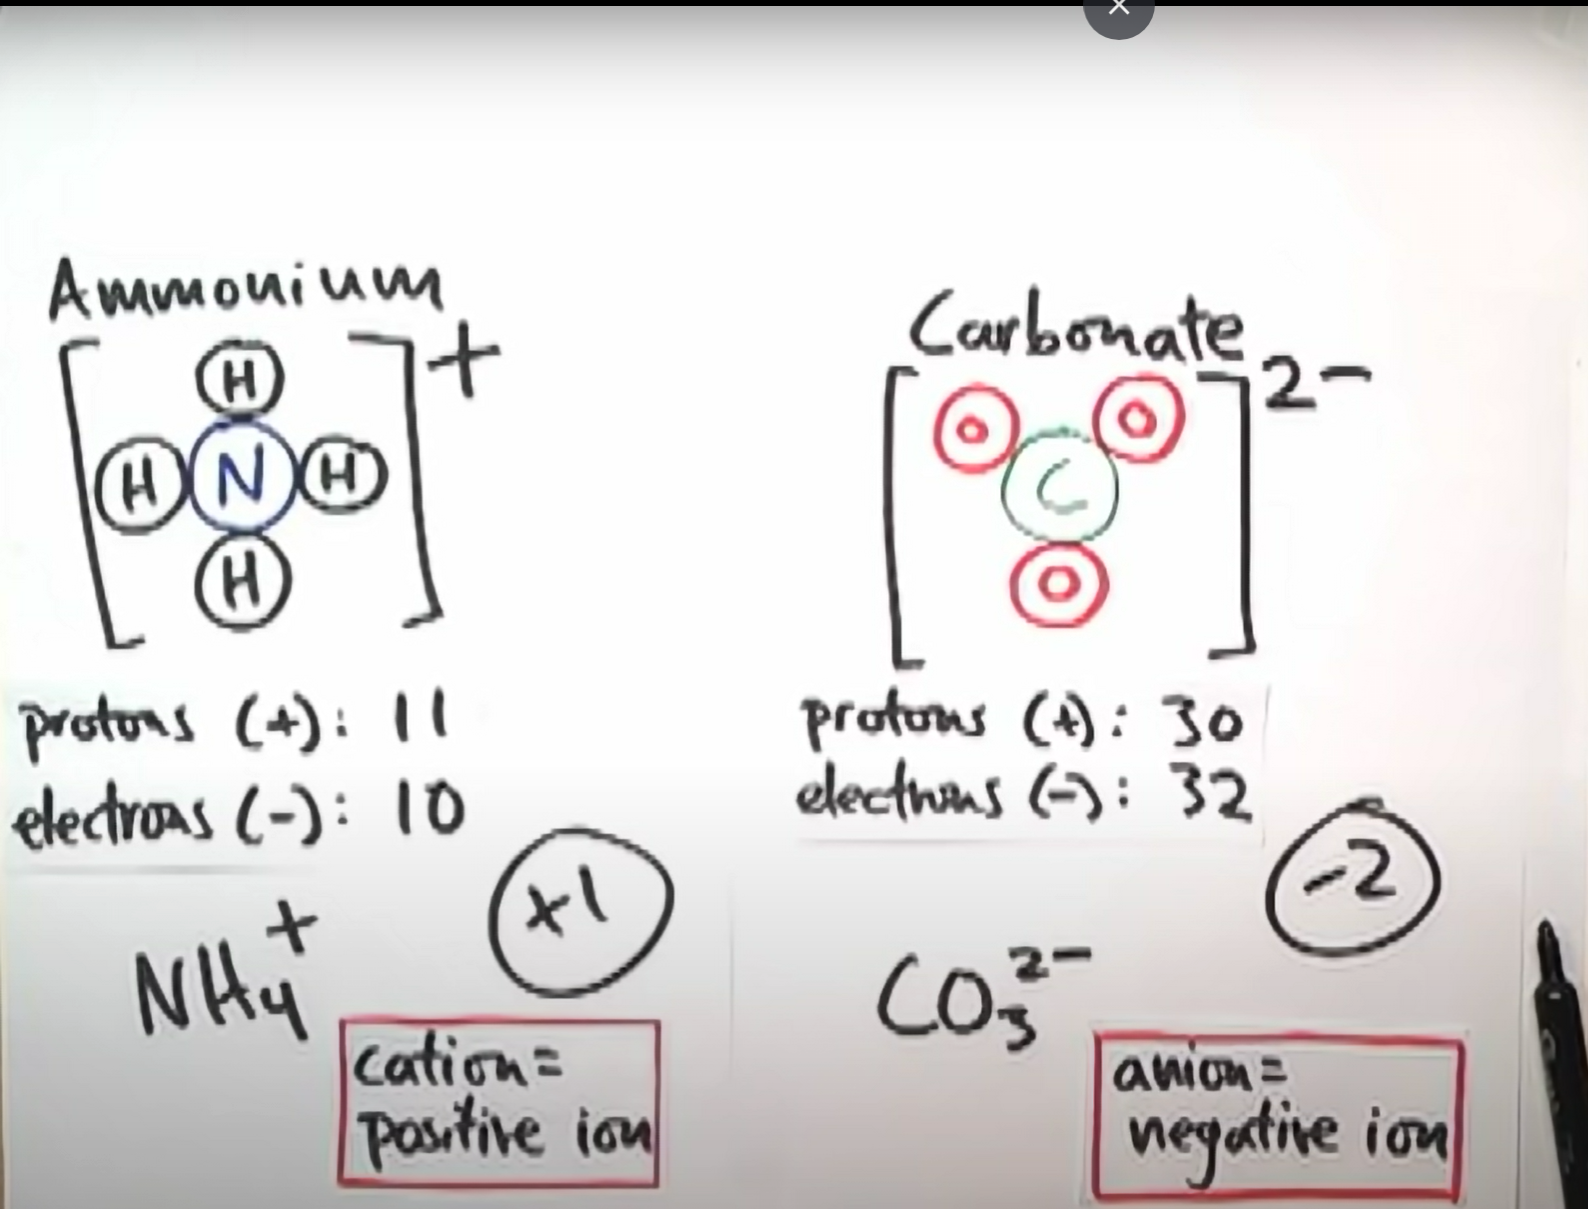 Ammonium
[ H H N H H ]+
protons (+): 11
electrons (-): 10
+1
NH4+
cation=
positive ion
Carbonate
[ O O C O ]2-
protons (+): 30
electrons (-): 32
-2
CO3 2-
anion=
negative ion